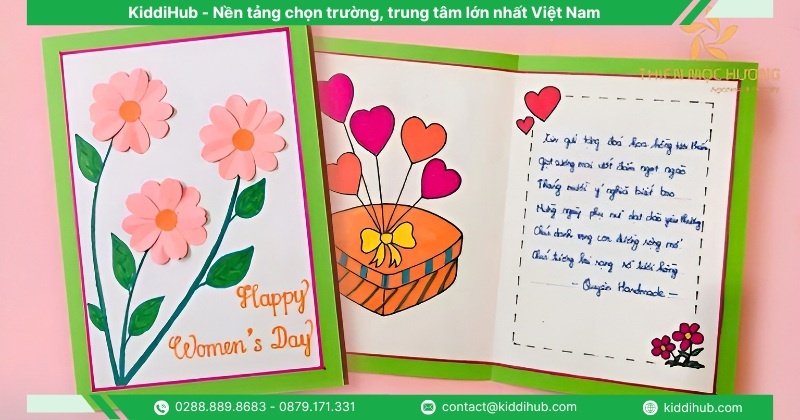 KiddiHub - Nền tảng chọn trường, trung tâm lớn nhất Việt Nam
THIEN MOC HUONG
Happy
Women's Day
Xin gửi tặng đoá hoa hồng tươi thắm
Giọt sương mai ướt đẫm ngọt ngào
Tháng mười ý nghĩa biết bao
Mừng ngày phụ nữ dạt dào yêu thương
Chúc danh vọng con đường rộng mở
Chúc tương lai rạng rỡ tươi hồng
- Quyên Handmade -
0288.889.8683 - 0879.171.331
contact@kiddihub.com
kiddihub.com